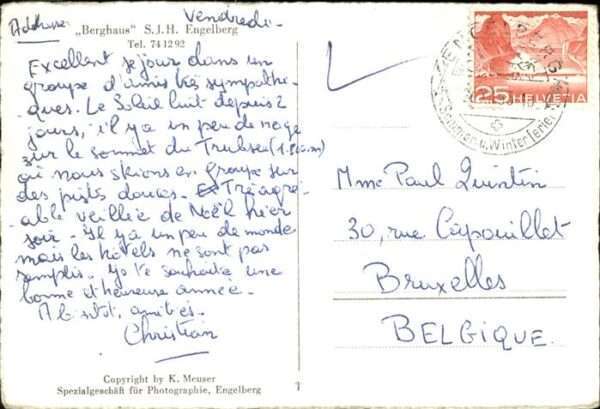 Adresse Vendredi.
„Berghaus" S.J.H. Engelberg
Tel. 741292
Excellent séjour dans un
groupe d'amis très sympathi-
ques. Le Soleil luit depuis 2
jours, il y a un peu de neige
sur le sommet du Trubsee
où nous skions en groupe sur
des pistes douces. Très agré-
able veillée de Noël hier
soir. Il y a un peu de monde
mais les hôtels ne sont pas
remplis. Je te souhaite une
bonne et heureuse année.
A bientôt, amitiés.
Christian
Copyright by K. Meuser
Spezialgeschäft für Photographie, Engelberg
1
25 HELVETIA
ENGELBERG
Sommer u. Winterferien
Mme Paul Quintin
30, rue Capouillet
Bruxelles
BELGIQUE.